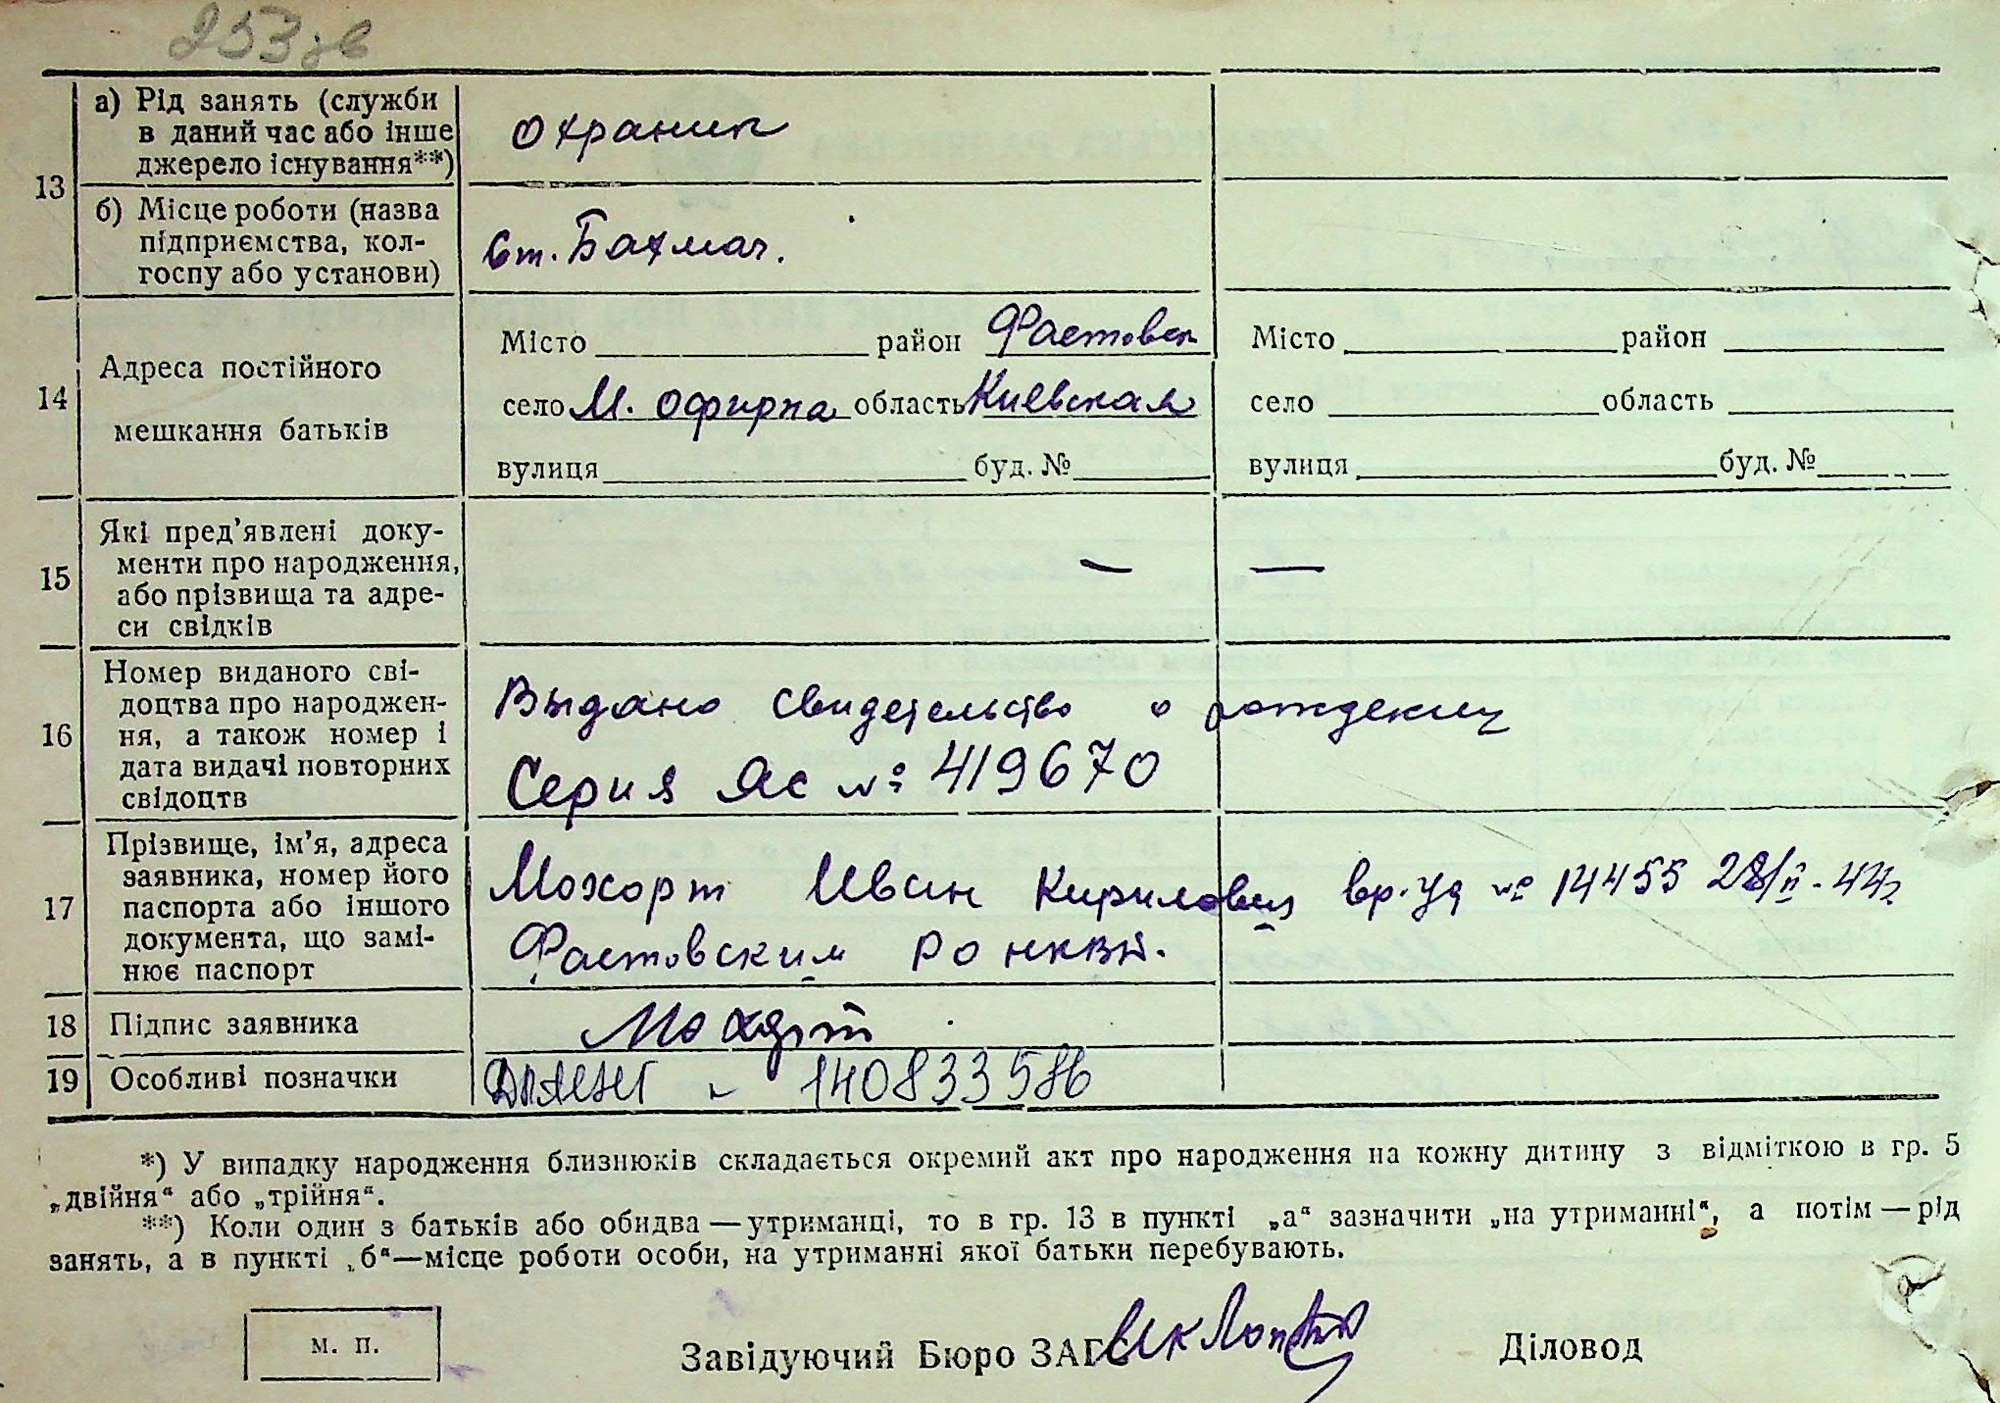 253 зв
13
а) Рід занять (служби
в даний час або інше
джерело існування**)
охраник
б) Місце роботи (назва
підприємства, кол-
госпу або установи)
ст. Бахмач.
14
Адреса постійного
мешкання батьків
Місто район Фастовск
село М. Офирна область Киевская
вулиця буд. №
Місто район
село область
вулиця буд. №
15
Які пред’явлені доку-
менти про народження,
або прізвища та адре-
си свідків
— —
16
Номер виданого сві-
доцтва про народжен-
ня, а також номер і
дата видачі повторних
свідоцтв
Выдано свидетельство о рождении
Серия Яс № 419670
17
Прізвище, ім’я, адреса
заявника, номер його
паспорта або іншого
документа, що замі-
нює паспорт
Мохорт Иван Кирилович вр. уд № 14455 28/II-44г
Фастовским РО НКВД.
18
Підпис заявника
Мохорт
19
Особливі позначки
140833586
*) У випадку народження близнюків складається окремий акт про народження на кожну дитину з відміткою в гр. 5
„двійня“ або „трійня“.
**) Коли один з батьків або обидва — утриманці, то в гр. 13 в пункті „а“ зазначити „на утриманні“, а потім — рід
занять, а в пункті „б“—місце роботи особи, на утриманні якої батьки перебувають.
м. п.
Завідуючий Бюро ЗАГС
Діловод